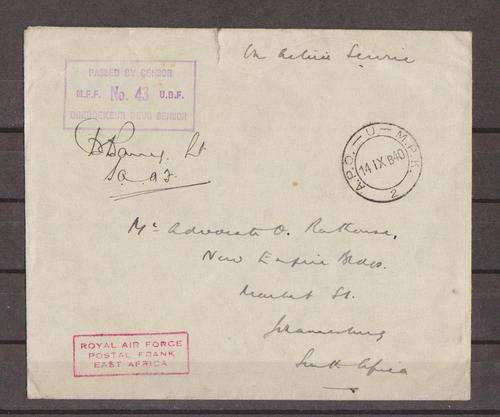 On Active Service
PASSED BY CENSOR
M.E.F. No. 43 U.D.F.
DEUR SENSOR
A.P.O. — U — M.P.K.
14 IX 40
2
Mr Advocate O.
New Empire Bldgs.
Market St.
Johannesburg
South Africa
ROYAL AIR FORCE
POSTAL FRANK
EAST AFRICA